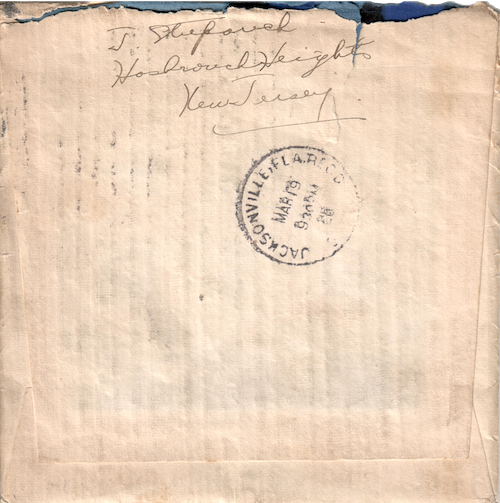 J. Stefanich
Hasbrouch Heights
New Jersey.
JACKSONVILLE, FLA. REC'D
MAR 19
930PM